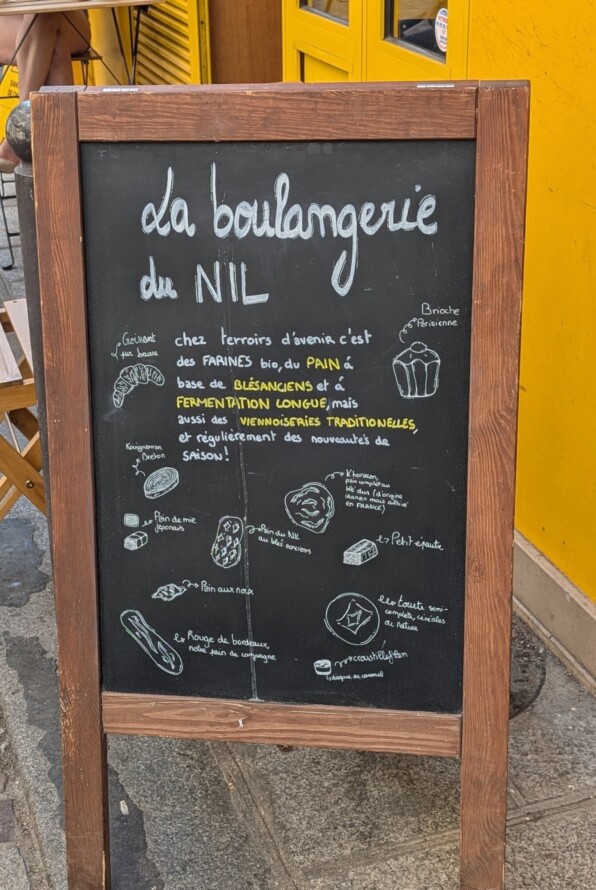 La boulangerie
du NIL
Croissant
pur beurre
Brioche
Parisienne
chez terroirs d'avenir c'est
des FARINES bio, du PAIN à
base de BLÉSANCIENS et à
FERMENTATION LONGUE, mais
aussi des VIENNOISERIES TRADITIONELLES,
et régulièrement des nouveautés de
SAISON!
Kouignaman
Breton
Khorasan,
pain complet au
blé dur (d'origine
iranien mais cultivé
en FRANCE)
Pain de mie
japonais
Pain du NIL
au blés anciens
Petit épautre
Pain aux noix
tourte semi-
complète, céréales
ou nature
Rouge de bordeaux,
notre pain de campagne
croustilleflan